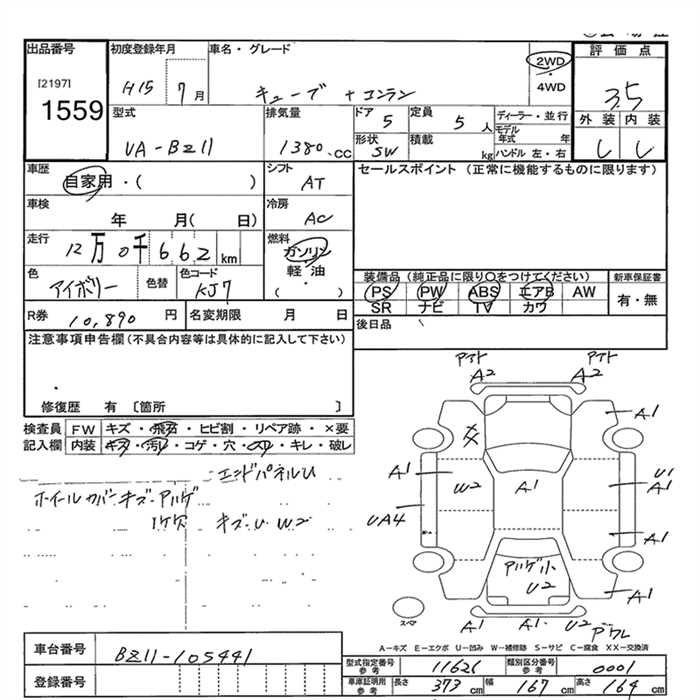 出品番号 初度登録年月 車名・グレード
[2197]
1559
H15 7月 キューブ + コンラン
2WD
・
4WD
評価点
3.5
外装 内装
型式 排気量 ドア 定員 ディーラー・並行
UA-BZ11 1380.cc 5 5人 モデル年式 年
形状 SW 積載 kg ハンドル 左・右
車歴 シフト セールスポイント (正常に機能するものに限ります)
自家用・( ) AT
車検 冷房
年 月( 日) AC
走行 燃料
12万0千662km ガソリン
軽・油
( )
色 色替 色コード
アイボリー KJ7
装備品(純正品に限り○をつけてください) 新車保証書
PS PW ABS エアB AW 有・無
SR ナビ TV カワ
R券 10,890円 名変期限 月 日 後日品
注意事項申告欄(不具合内容等は具体的に記入して下さい)
修復歴 有 〔箇所 〕
検査員 FW キズ・飛石・ヒビ割・リペア跡・×要
記入欄 内装 キズ・汚れ・コゲ・穴・スレ・キレ・破レ
エンドパネルU
ホイールカバーキズ-アハゲ
1ケ欠 キズ・U W2
アト アト
A2 A2
A1
A1 U1
W2 A1 A1
UA4
A1
アハゲ小
U2
A1
A1 U2
スペア
A-キズ E-エクボ U-凹み W-補修跡 S-サビ C-腐食 XX-交換済
車台番号 BZ11-105441
登録番号
型式指定番号 参考 11621 類別区分番号 参考 0001
車庫証明用 参考 長さ 373cm 幅 167cm 高さ 164cm